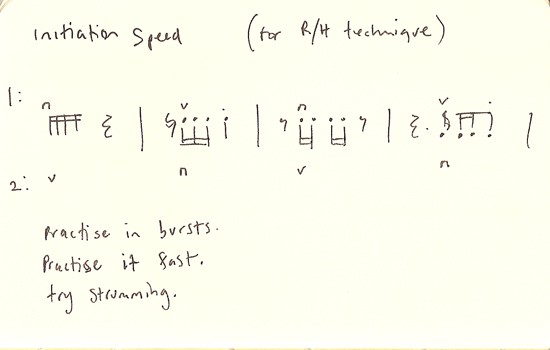 Initiation Speed (for R/H technique)
1:
2:
Practise in bursts.
Practise it fast.
try strumming.